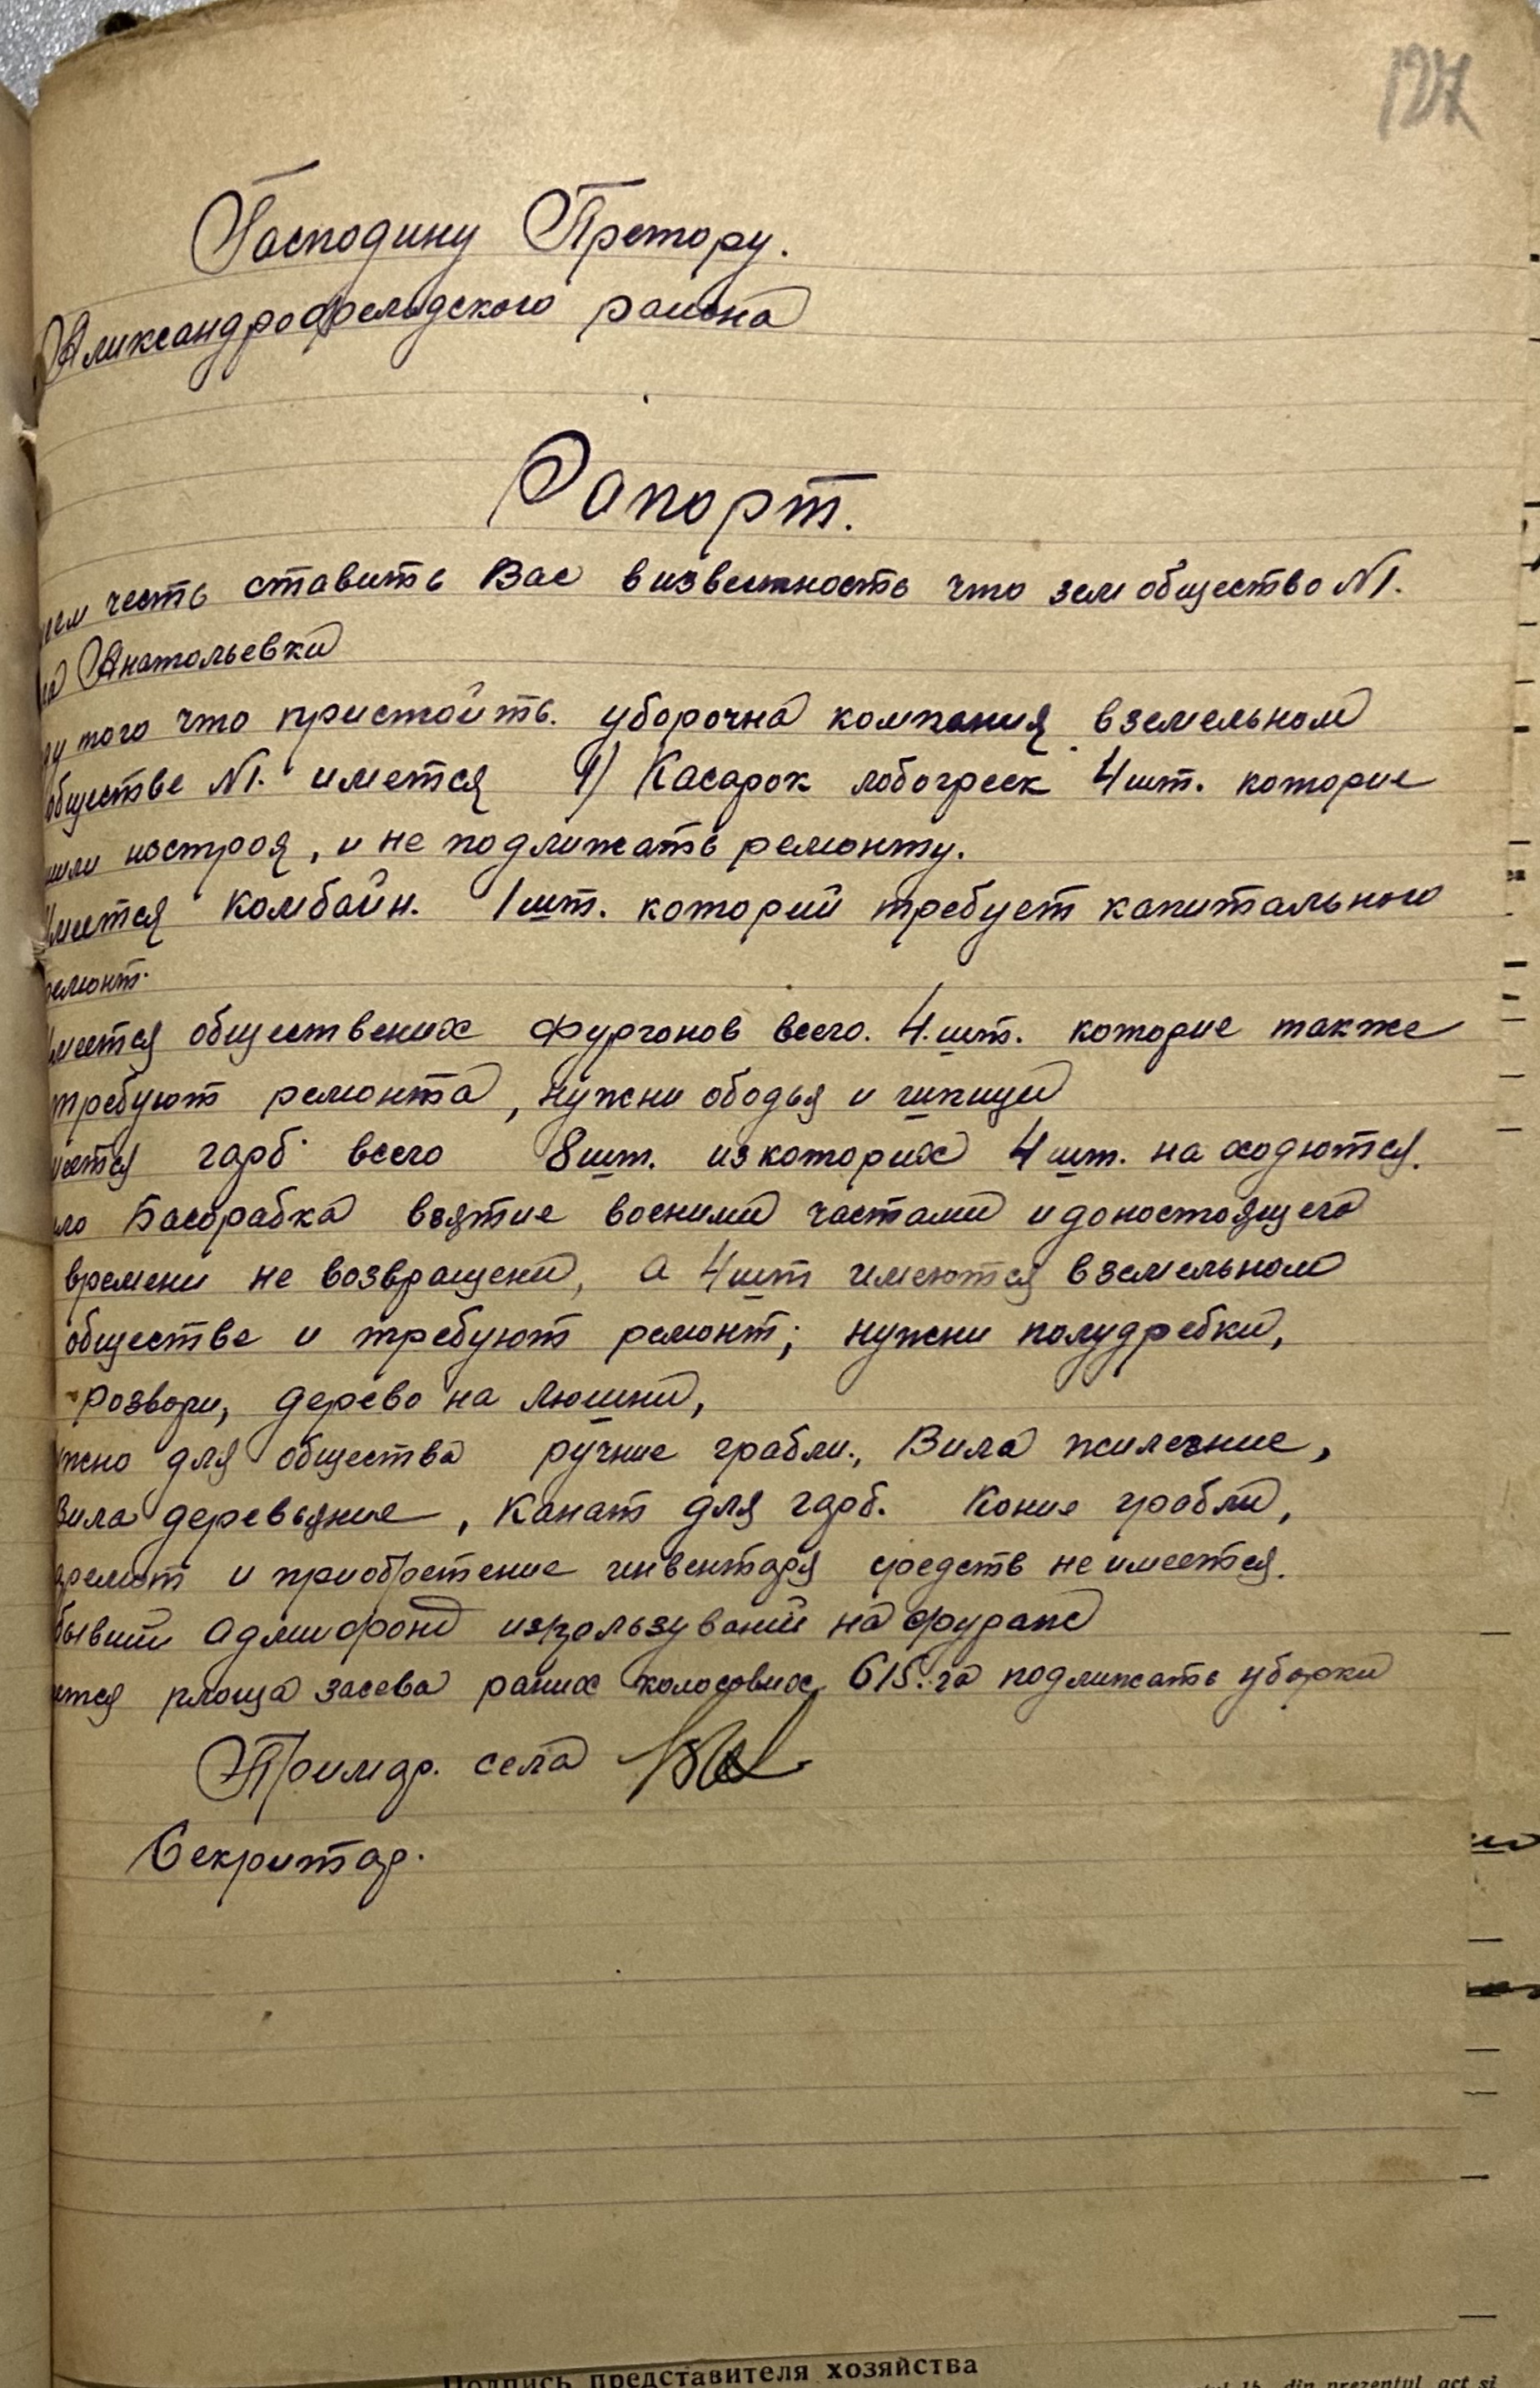 127
Господину Претору.
Аликсандрофельдского района
Рапорт.
честь ставить Вас визвестность что зем общество №1.
Анатольевки
того что пристоить. уборочна компания вземельном
обществе №1. имется 1) Касарок лобогреек 4 шт. которие
и не подлижать ремонту.
Имется комбайн. 1 шт. который требует капитального
ремонт.
Имеется обществених фургонов всего. 4. шт. которие также
требуют ремонта, нужни ободья и шпици
гарб всего 8 шт. изкоторих 4 шт. на ходются.
Басарабка взятие военими частами идонастоящего
времени не возвращени, а 4 шт имеются вземельном
обществе и требуют ремонт; нужни полудребки,
розвори, дерево на люшни,
для общества ручние грабли., Вила жилезние,
Вила деревьяние, Канат для гарб. Коние грабли,
ремонт и приобретение инвентаря средств не имеется.
бывший адмифонд изпользуваний на фураж
площа засева раних колосових 615. га подлижать уборки
Примар. села
Секритар.
Подпись представителя хозяйства
din prezentul act și